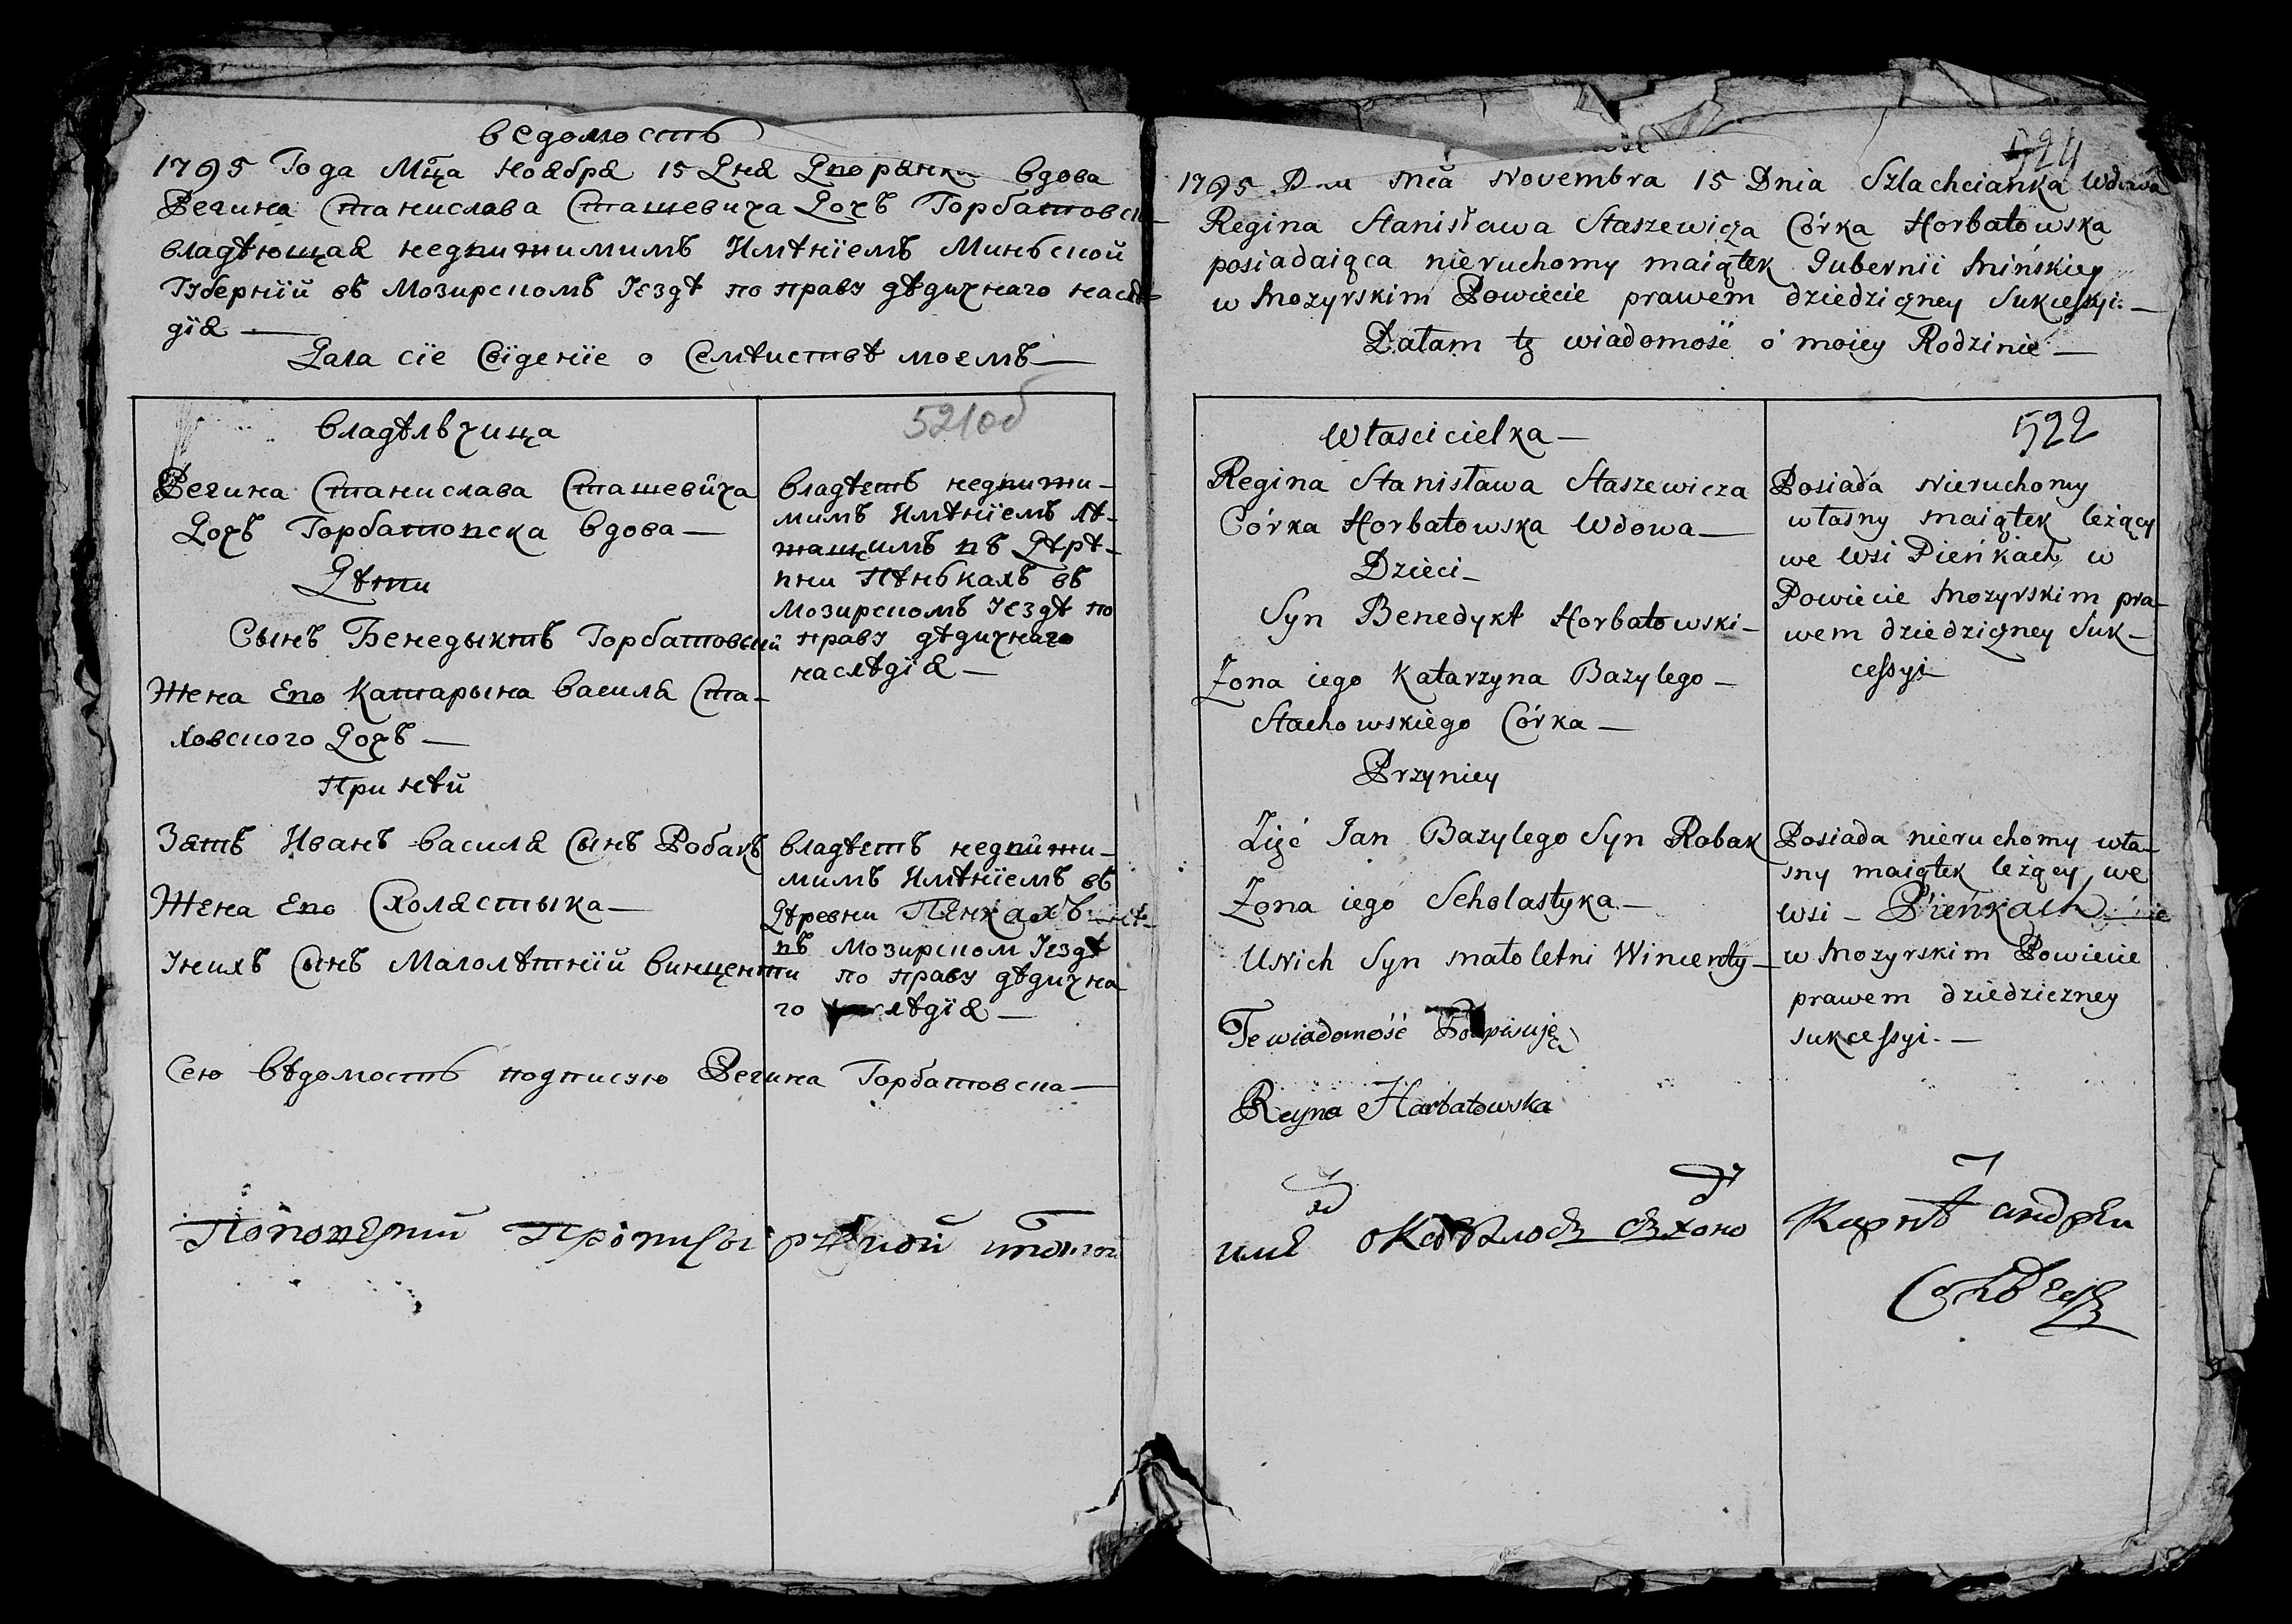 Ведомость
1795 Года Мца Ноября 15 Дня Дворянка Вдова
Регина Станислава Сташевича Дочъ Горбатовск
владѣющая недвижимимъ Имѣнїемъ Минской
Губернїй въ Мозирскомъ Уездѣ по праву дѣдичнаго наслѣ-
дїя —
Дала сїе Свїденїе о Семѣиствѣ моемъ —
Владѣлъчица
521об
Регина Станислава Сташевича
Дочъ Горбатовска Вдова —
Дѣти
Сынъ Бенедыктъ Горбатовский
Жена Его Катарына Василя Ста-
ховского Дочъ —
При нѣй
Зять Иванъ Василя Сынъ Робакъ
Жена Его Схолястыка —
Унихъ Сынъ Малолѣтнїй Винценти
Владѣетъ недвижи-
мимъ Имѣнїемъ лѣ-
жащимъ въ Дѣрѣ-
вни Пѣнькахъ въ
Мозирскомъ Уездѣ по
праву дѣдичнаго
наслѣдїя —
Владѣетъ недвижи-
мимъ Имѣнїемъ въ
Дѣревни Пѣнкахъ
въ Мозирском Уездѣ
по праву дѣдична
го наслѣдїя —
Сею Вѣдомость подписую Регина Горбатовска —
524
1795 Mca Novembra 15 Dnia Szlachcianka Wdowa
Regina Stanisława Staszewicza Córka Horbatowska
posiadaiąca nieruchomy maiątek Gubernii Mińskiey
w Mozyrskim Powiecie prawem dziedziczney Sukcessyi. —
Dałam tę wiadomość o moiey Rodzinie —
Włascicielka —
522
Regina Stanisława Staszewicza
Córka Horbatowska Wdowa —
Dzieci —
Syn Benedykt Horbatowski —
Żona iego Katarzyna Bazylego —
Stachowskiego Córka —
Przyniey
Zięć Jan Bazylego Syn Robak
Żona iego Scholastyka —
Unich Syn małoletni Wincenty —
Posiada Nieruchomy
własny maiątek leżący
we Wsi Pieńkach w
Powiecie Mozyrskim pra-
wem dziedziczney Suk-
cessyi —
Posiada nieruchomy wła-
sny maiątek leżący we
Wsi — Pieńkach
w Mozyrskim Powiecie
prawem dziedziczney
sukcessyi. —
Te wiadomość Podpisuję
Reyna Harbatowska
андрѣи